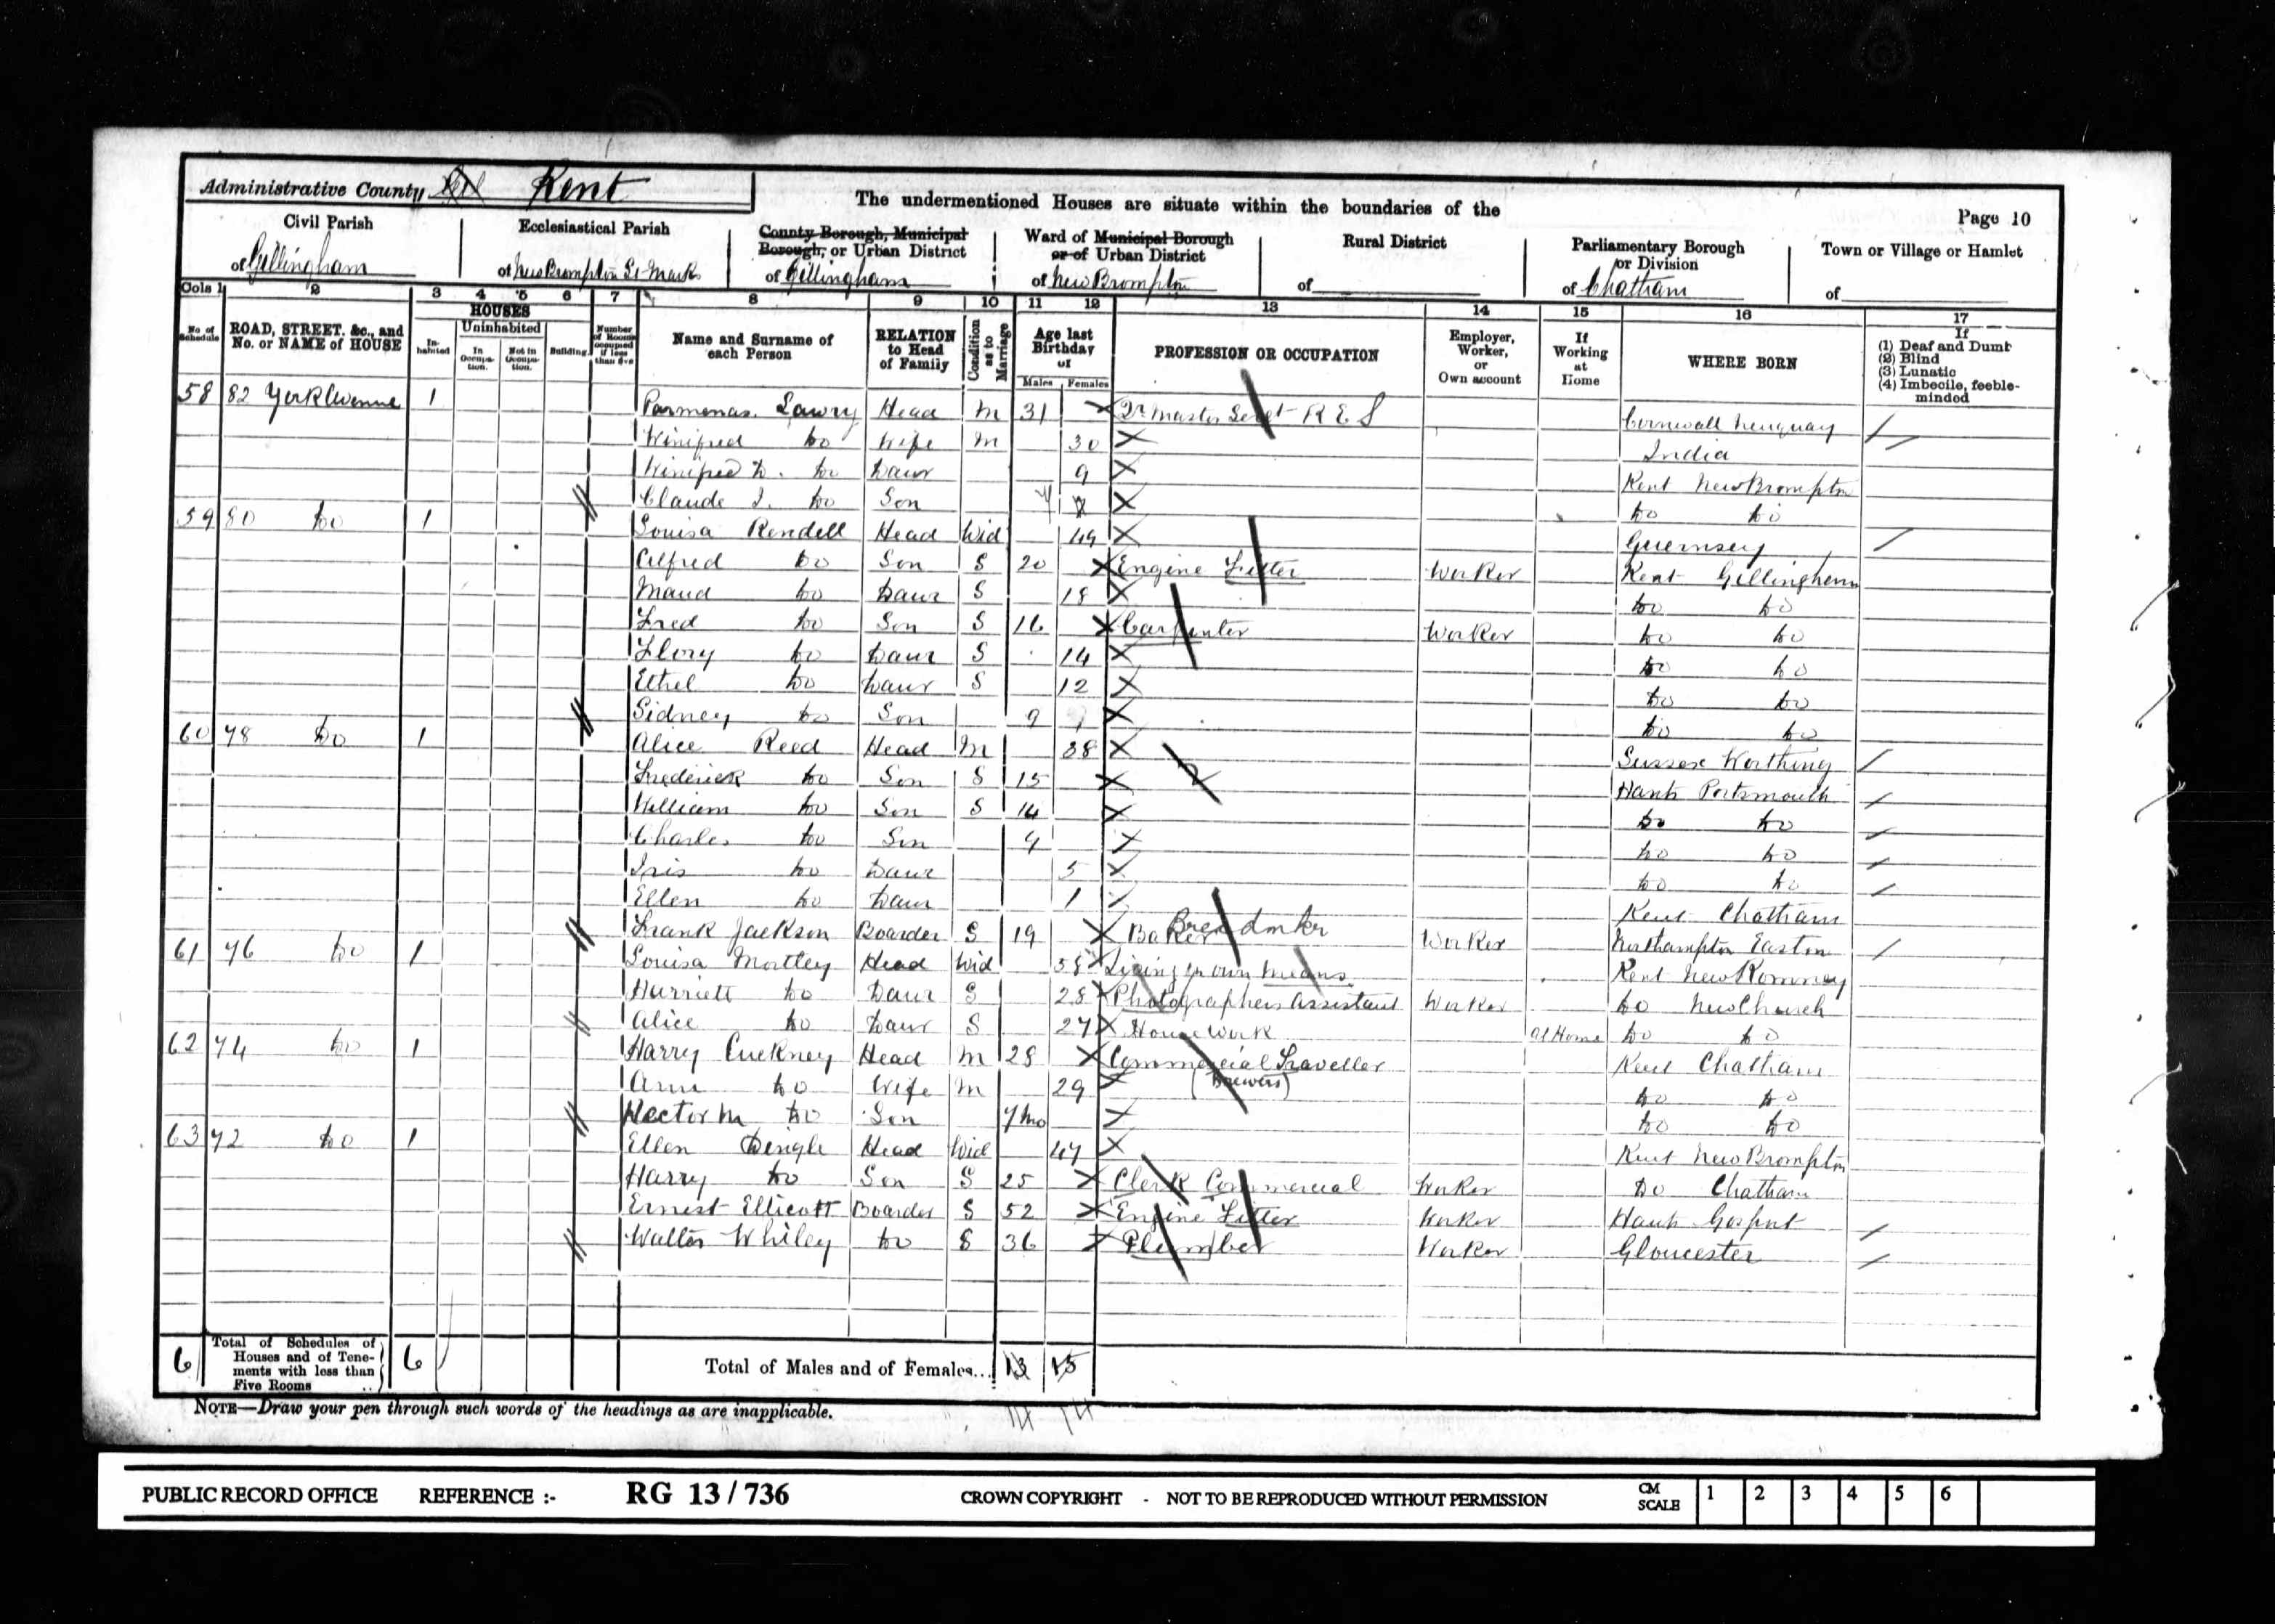 Administrative County Kent
The undermentioned Houses are situate within the boundaries of the
Page 10
Civil Parish
of Gillingham
Ecclesiastical Parish
of New Brompton St Marks
County Borough, Municipal
Borough, or Urban District
of Gillingham
Ward of Municipal Borough
or of Urban District
of New Brompton
Rural District
of
Parliamentary Borough
or Division
of Chatham
Town or Village or Hamlet
of
Cols 1 2 3 4 5 6 7 8 9 10 11 12 13 14 15 16 17
No. of Schedule
ROAD, STREET, &c., and
No. or NAME of HOUSE
HOUSES
Inhabited
Uninhabited
In Occupation.
Not in Occupation.
Building
Number of Rooms occupied if less than five
Name and Surname of
each Person
RELATION
to Head
of Family
Condition as to Marriage
Age last
Birthday
of
Males Females
PROFESSION OR OCCUPATION
Employer,
Worker,
or
Own account
If
Working
at
Home
WHERE BORN
If
(1) Deaf and Dumb
(2) Blind
(3) Lunatic
(4) Imbecile, feeble-
minded
58 82 York Avenue 1 Parmenas Lawry Head M 31 Qr Master Sergt R E S Cornwall Newquay
Winifred Do Wife M 30 India
Winifred D. Do Daur 9 Kent New Brompton
Claude J. Do Son 7 Do Do
59 80 Do 1 Louisa Rendell Head Wid 49 Guernsey
Alfred Do Son S 20 Engine Fitter Worker Kent Gillingham
Maud Do Daur S 18 Do Do
Fred Do Son S 16 Carpenter Worker Do Do
Flory Do Daur S 14 Do Do
Ethel Do Daur S 12 Do Do
Sidney Do Son 9 Do Do
60 78 Do 1 Alice Reed Head M 38 Sussex Worthing
Frederick Do Son S 15 Hants Portsmouth
William Do Son S 14 Do Do
Charles Do Son 9 Do Do
Iris Do Daur 5 Do Do
Ellen Do Daur 1 Kent Chatham
Frank Jackson Boarder S 19 Baker Breadmker Worker Northampton Easton
61 76 Do 1 Louisa Mottley Head Wid 58 Living on own means Kent New Romney
Harriett Do Daur S 28 Photographers Assistant Worker Do New Church
Alice Do Daur S 27 House Work At Home Do Do
62 74 Do 1 Harry Cuckney Head M 28 Commercial Traveller Kent Chatham
(Brewers)
Ann Do Wife M 29 Do Do
Hector M Do Son 7 mo Do Do
63 72 Do 1 Ellen Dengle Head Wid 47 Kent New Brompton
Harry Do Son S 25 Clerk Commercial Worker Do Chatham
Ernest Ellicott Boarder S 52 Engine Fitter Worker Hants Gosport
Walter Whiley Do S 36 Plumber Worker Gloucester
6 Total of Schedules of
Houses and of Tene-
ments with less than
Five Rooms .. 6
Total of Males and of Females... 13 15
14 14
NOTE—Draw your pen through such words of the headings as are inapplicable.
PUBLIC RECORD OFFICE REFERENCE :- RG 13 / 736 CROWN COPYRIGHT - NOT TO BE REPRODUCED WITHOUT PERMISSION
CM SCALE 1 2 3 4 5 6